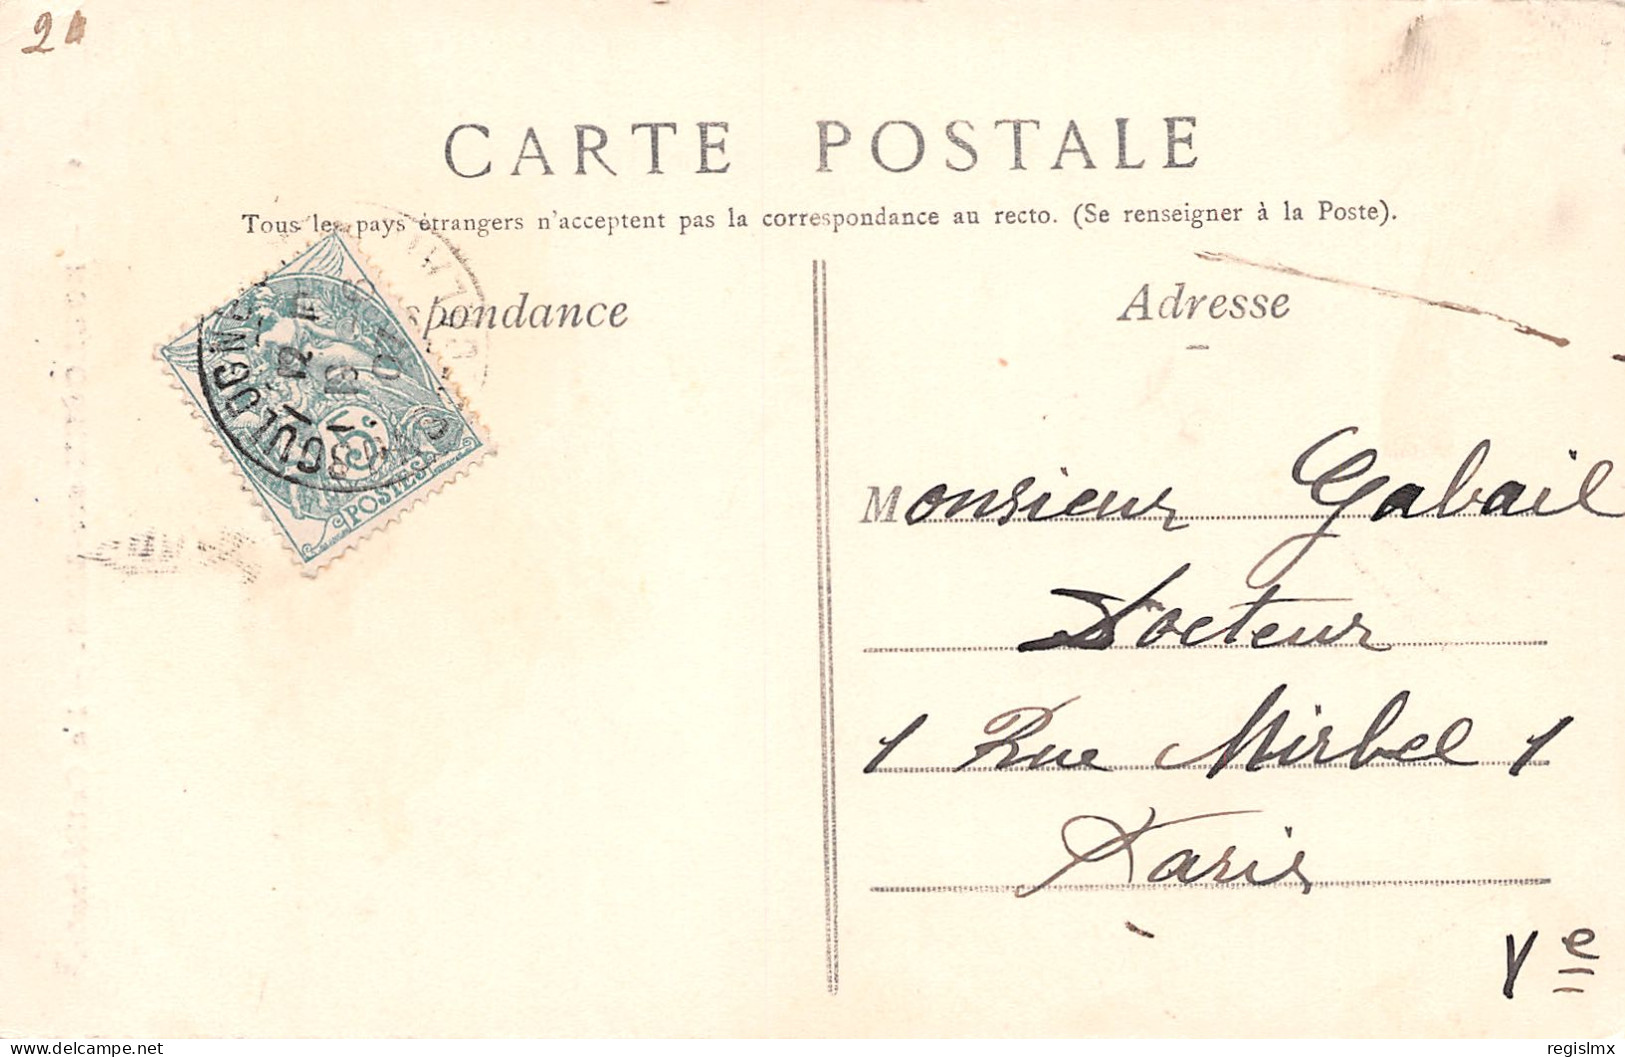 24
CARTE POSTALE
Tous les pays étrangers n'acceptent pas la correspondance au recto. (Se renseigner à la Poste).
spondance
Adresse
5c
POSTES
Monsieur Gabail
Docteur
1 Rue Mirbel 1
Paris
Ve
delcampe.net
regislmx